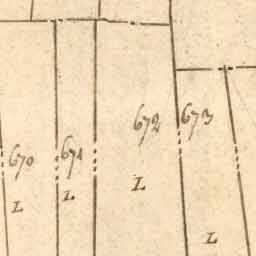 672 673
670 671
L L L
L